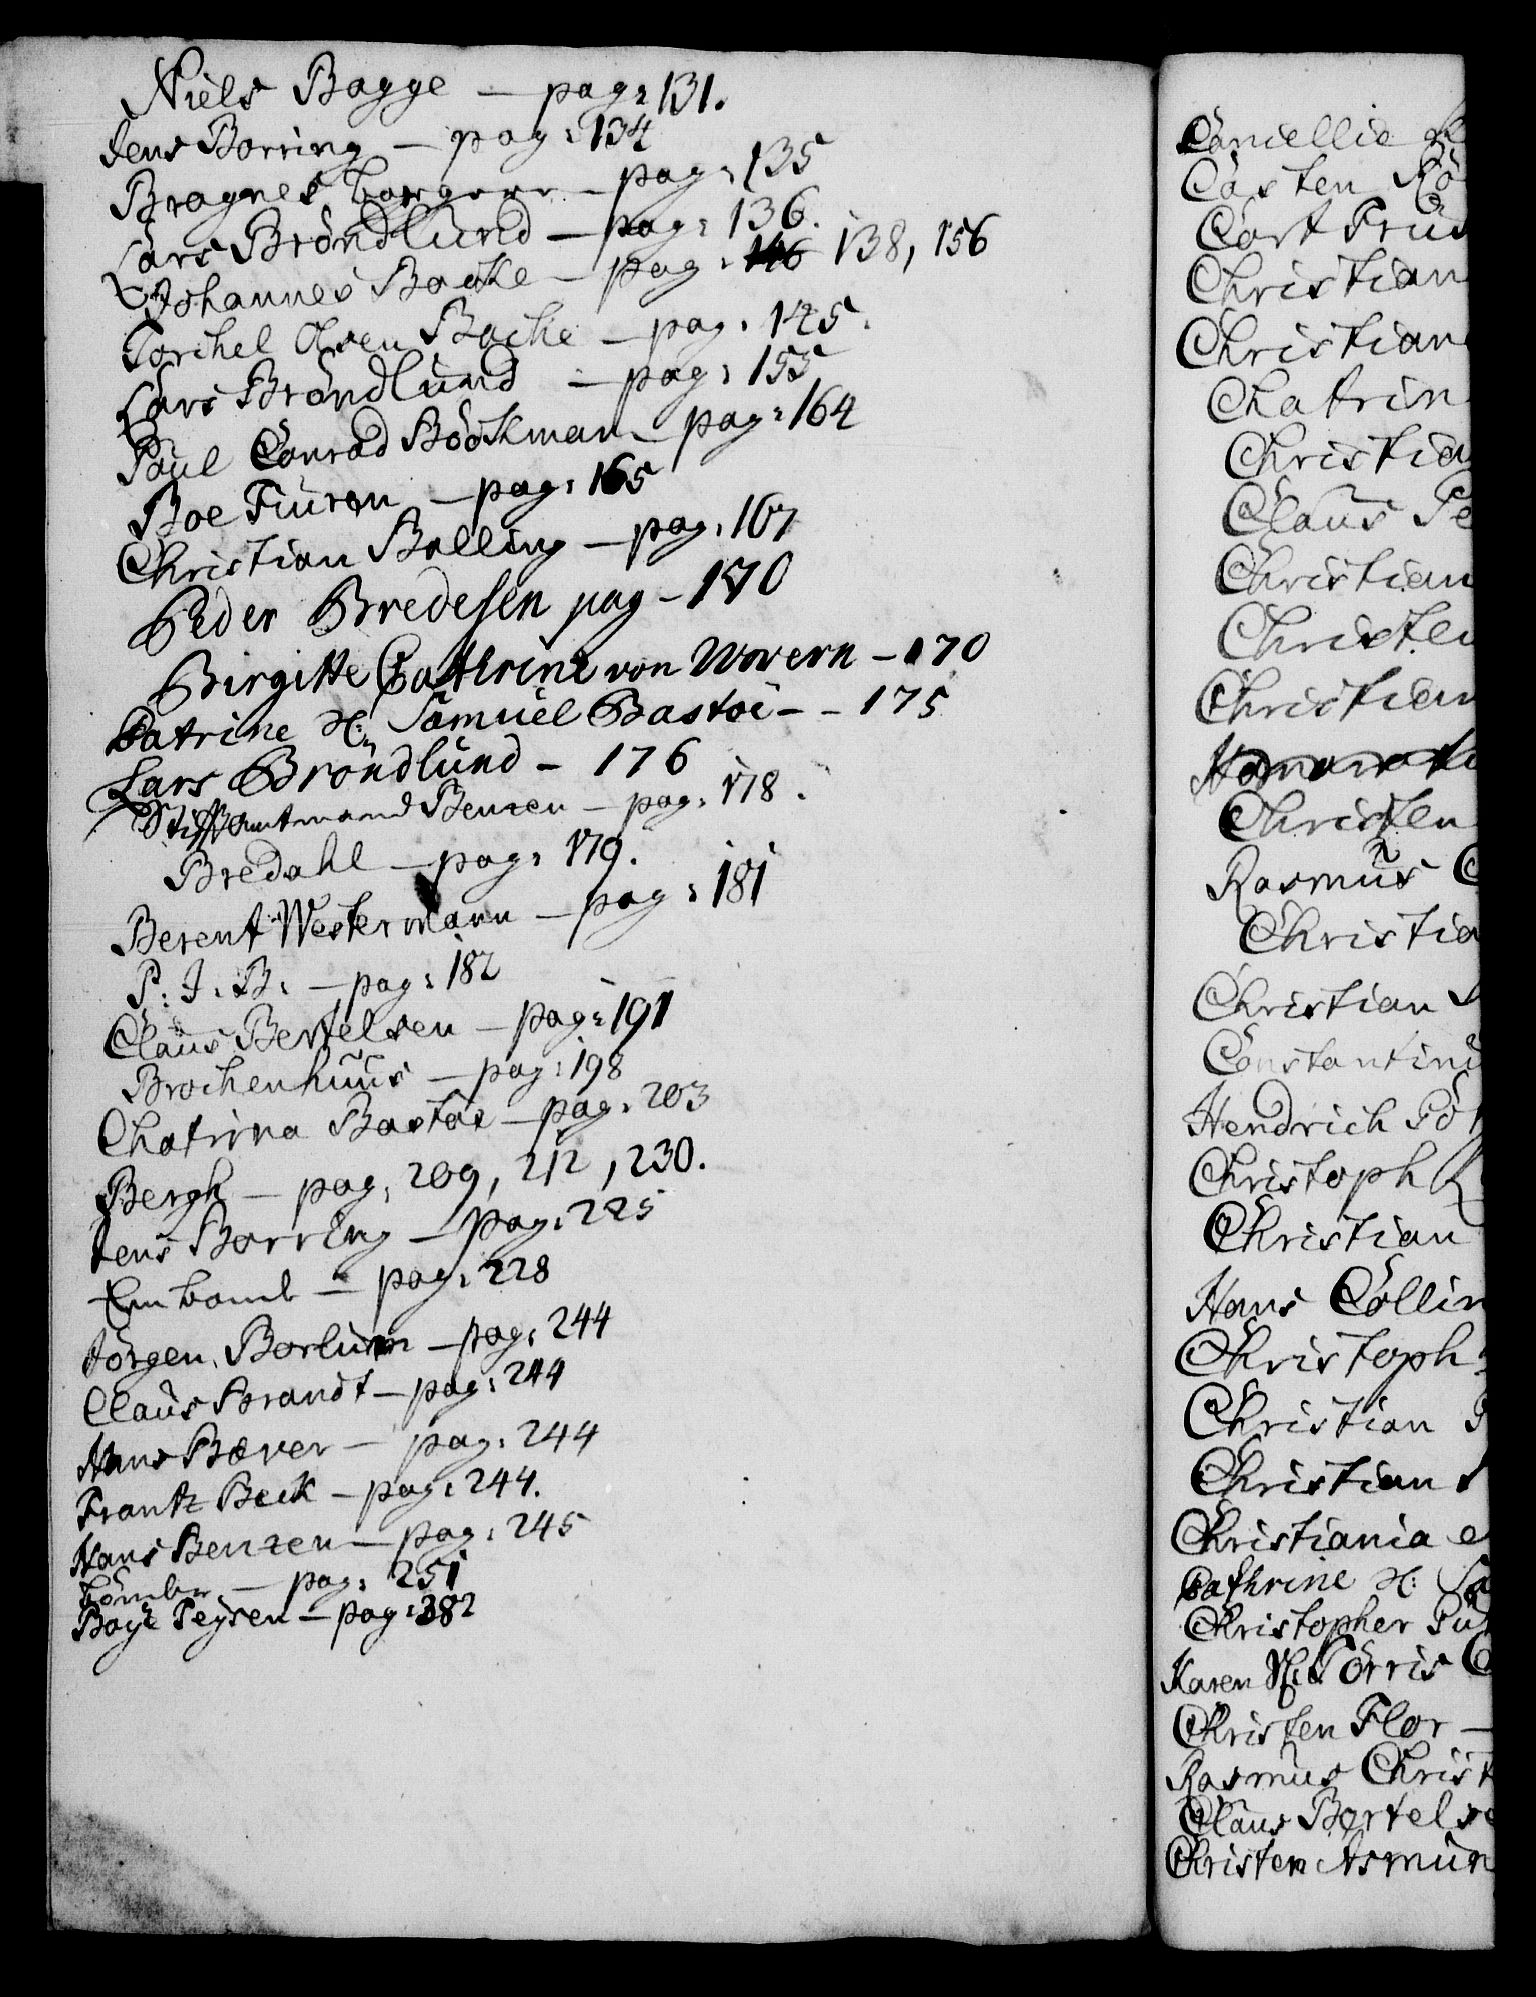 Niels Bagge — pag: 131.
Jens Borring — pag: 134
Bragnes borgere — pag: 135
Lars Bröndlund — pag: 136.
Johannes Backe — pag: 138, 156
Torchel Olsen Bache — pag: 145.
Lars Bröndlund — pag: 155
Poul Conrad Böckman — pag: 164
Boe Fiuren — pag: 165
Christian Balling — pag: 167
Peder Bredesen pag - 170
Birgitte Cathrine von Wovern - 170
Catrine Sl: Samuel Bastoi - - 175
Lars Bröndlund - 176
Stiftamtmand Benzen — pag: 178.
Bredahl — pag: 179.
Berent Westermann — pag: 181
P: J: B: — pag: 182
Claus Bertelsen — pag: 191
Brochenhuus — pag: 198
Chatrina Bastoe — pag: 203
Bergh — pag: 209, 212, 230.
Jens Borring — pag: 225
— pag: 228
Jörgen Borlum — pag: 244
Claus Brandt — pag: 244
Hans Bæver — pag: 244
Frantz Beck — pag: 244.
Hans Benzen — pag: 245
— pag: 251
Baye Peysen — pag: 382
Camellie
Casten
Cort
Christian
Christian
Chatrin
Christia
Claus Pe
Christian
Christen
Christian
Christen
Rasmus C
Christia
Christian
Constantin
Hendrich
Christoph
Christian
Hans Collin
Christoph
Christian
Christian
Christiania
Cathrine Sl: Sa
Christopher
Karen Sl: Törris C
Christen Flor —
Rasmus Christ
Claus Bertelse
Christen Asmun